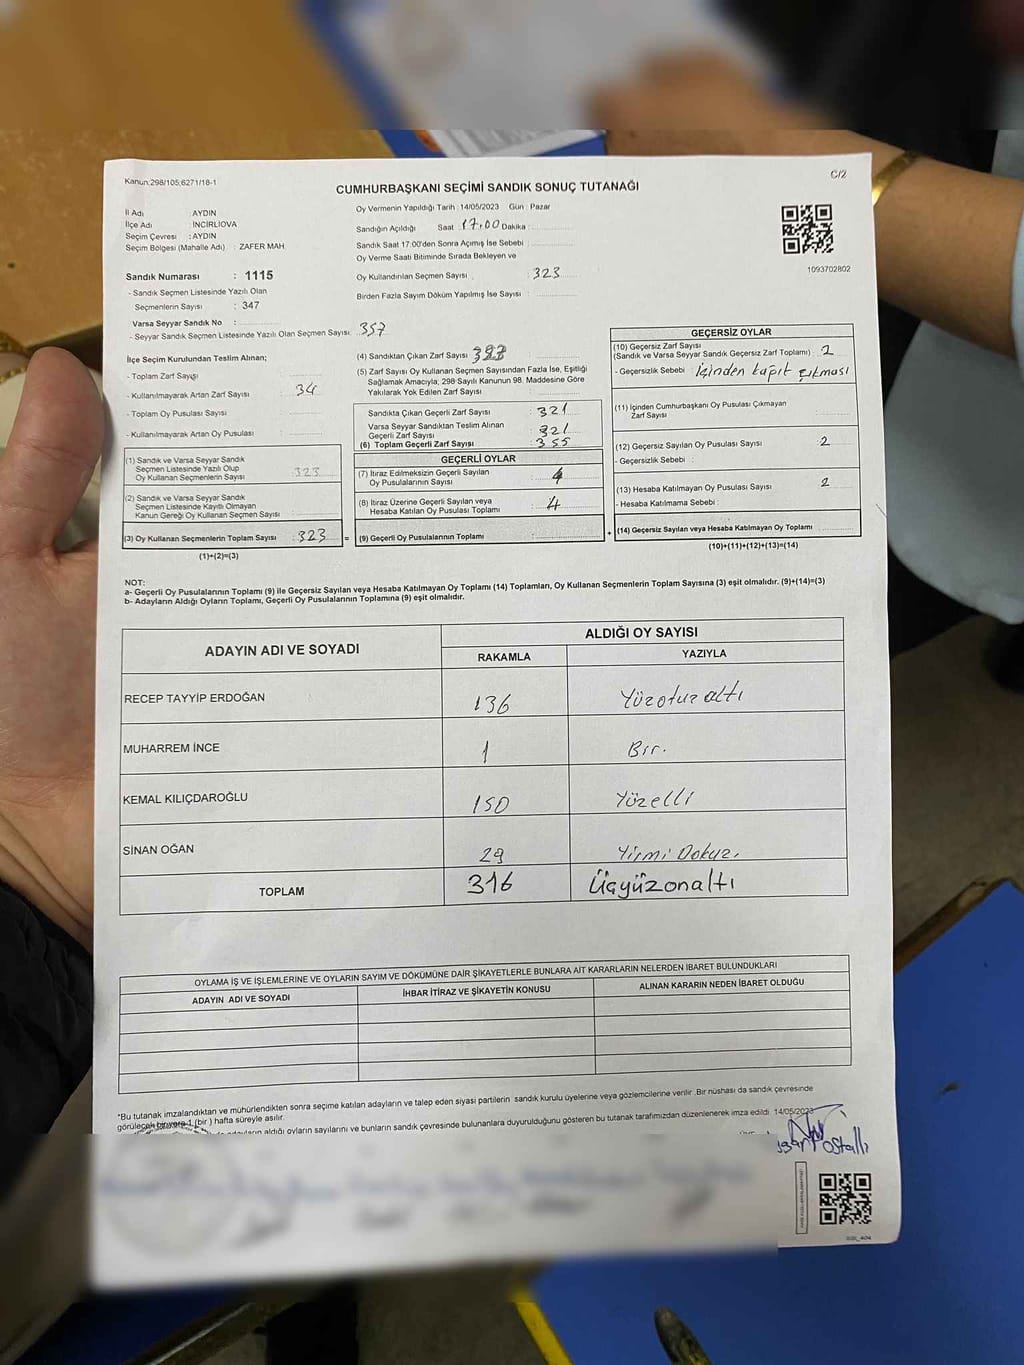 Kanun:298/105,6271/18-1
C/2
CUMHURBAŞKANI SEÇİMİ SANDIK SONUÇ TUTANAĞI
İl Adı : AYDIN
İlçe Adı : İNCİRLİOVA
Seçim Çevresi : AYDIN
Seçim Bölgesi (Mahalle Adı) : ZAFER MAH.
Sandık Numarası : 1115
- Sandık Seçmen Listesinde Yazılı Olan
Seçmenlerin Sayısı : 347
Varsa Seyyar Sandık No :
- Seyyar Sandık Seçmen Listesinde Yazılı Olan Seçmen Sayısı: 357
Oy Vermenin Yapıldığı Tarih : 14/05/2023 Gün : Pazar
Sandığın Açıldığı Saat : 17,00 Dakika :
Sandık Saat 17:00'den Sonra Açımış İse Sebebi :
Oy Verme Saati Bitiminde Sırada Bekleyen ve
Oy Kullandırılan Seçmen Sayısı : 323
Birden Fazla Sayım Döküm Yapılmış İse Sayısı :
1093702802
İlçe Seçim Kurulundan Teslim Alınan;
- Toplam Zarf Sayısı :
- Kullanılmayarak Artan Zarf Sayısı : 34
- Toplam Oy Pusulası Sayısı :
- Kullanılmayarak Artan Oy Pusulası :
(1) Sandık ve Varsa Seyyar Sandık
Seçmen Listesinde Yazılı Olup
Oy Kullanan Seçmenlerin Sayısı : 323
(2) Sandık ve Varsa Seyyar Sandık
Seçmen Listesinde Kayıtlı Olmayan
Kanun Gereği Oy Kullanan Seçmen Sayısı :
(3) Oy Kullanan Seçmenlerin Toplam Sayısı : 323 =
(1)+(2)=(3)
(4) Sandıktan Çıkan Zarf Sayısı : 323
(5) Zarf Sayısı Oy Kullanan Seçmen Sayısından Fazla İse, Eşitliği
Sağlamak Amacıyla, 298 Sayılı Kanunun 98. Maddesine Göre
Yakılarak Yok Edilen Zarf Sayısı :
Sandıkta Çıkan Geçerli Zarf Sayısı : 321
Varsa Seyyar Sandıktan Teslim Alınan
Geçerli Zarf Sayısı : 321
(6) Toplam Geçerli Zarf Sayısı : 355
GEÇERLİ OYLAR
(7) İtiraz Edilmeksizin Geçerli Sayılan
Oy Pusulalarının Sayısı : 4
(8) İtiraz Üzerine Geçerli Sayılan veya
Hesaba Katılan Oy Pusulası Toplamı : 4
(9) Geçerli Oy Pusulalarının Toplamı : +
GEÇERSİZ OYLAR
(10) Geçersiz Zarf Sayısı
(Sandık ve Varsa Seyyar Sandık Geçersiz Zarf Toplamı) : 2
- Geçersizlik Sebebi : İçinden kağıt çıkması
(11) İçinden Cumhurbaşkanı Oy Pusulası Çıkmayan
Zarf Sayısı :
(12) Geçersiz Sayılan Oy Pusulası Sayısı : 2
- Geçersizlik Sebebi :
(13) Hesaba Katılmayan Oy Pusulası Sayısı : 2
- Hesaba Katılmama Sebebi :
(14) Geçersiz Sayılan veya Hesaba Katılmayan Oy Toplamı :
(10)+(11)+(12)+(13)=(14)
NOT:
a- Geçerli Oy Pusulalarının Toplamı (9) ile Geçersiz Sayılan veya Hesaba Katılmayan Oy Toplamı (14) Toplamları, Oy Kullanan Seçmenlerin Toplam Sayısına (3) eşit olmalıdır. (9)+(14)=(3)
b- Adayların Aldığı Oyların Toplamı, Geçerli Oy Pusulalarının Toplamına (9) eşit olmalıdır.
ADAYIN ADI VE SOYADI
ALDIĞI OY SAYISI
RAKAMLA YAZIYLA
RECEP TAYYİP ERDOĞAN 136 Yüzotuzaltı
MUHARREM İNCE 1 Bir.
KEMAL KILIÇDAROĞLU 150 Yüzelli
SİNAN OĞAN 29 Yirmi Dokuz.
TOPLAM 316 Üçyüzonaltı
OYLAMA İŞ VE İŞLEMLERİNE VE OYLARIN SAYIM VE DÖKÜMÜNE DAİR ŞİKAYETLERLE BUNLARA AİT KARARLARIN NELERDEN İBARET BULUNDUKLARI
ADAYIN ADI VE SOYADI İHBAR İTİRAZ VE ŞİKAYETİN KONUSU ALINAN KARARIN NEDEN İBARET OLDUĞU
*Bu tutanak imzalandıktan ve mühürlendikten sonra seçime katılan adayların ve talep eden siyasi partilerin sandık kurulu üyelerine veya gözlemcilerine verilir. Bir nüshası da sandık çevresinde
görülecek bir yere 1 (bir) hafta süreyle asılır.
aldığı oyların sayılarını ve bunların sandık çevresinde bulunanlara duyurulduğunu gösteren bu tutanak tarafımızdan düzenlenerek imza edildi. 14/05/2023